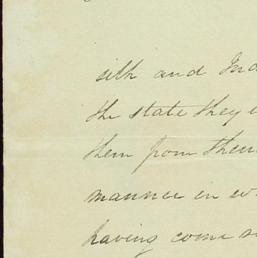 silk and
the state they
them from
manner in
having come